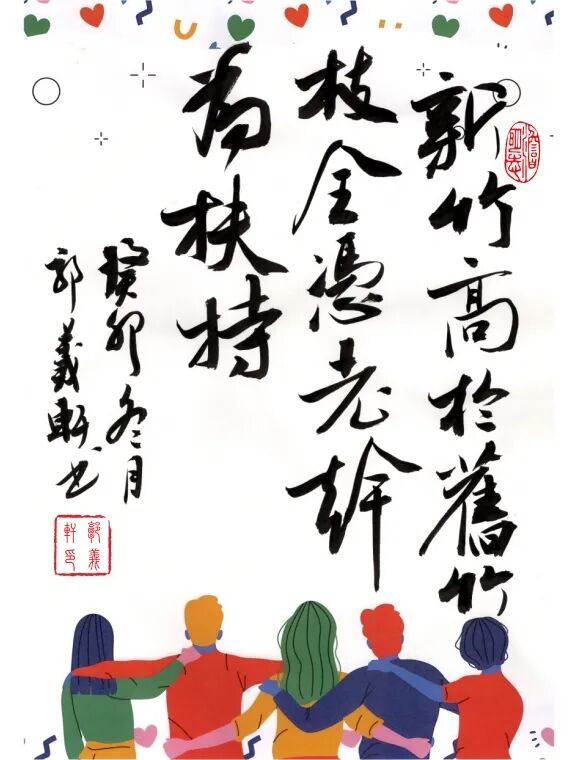 新竹高於舊竹
枝全憑老幹
為扶持
癸卯冬月
郭義軒书
郭義
軒印